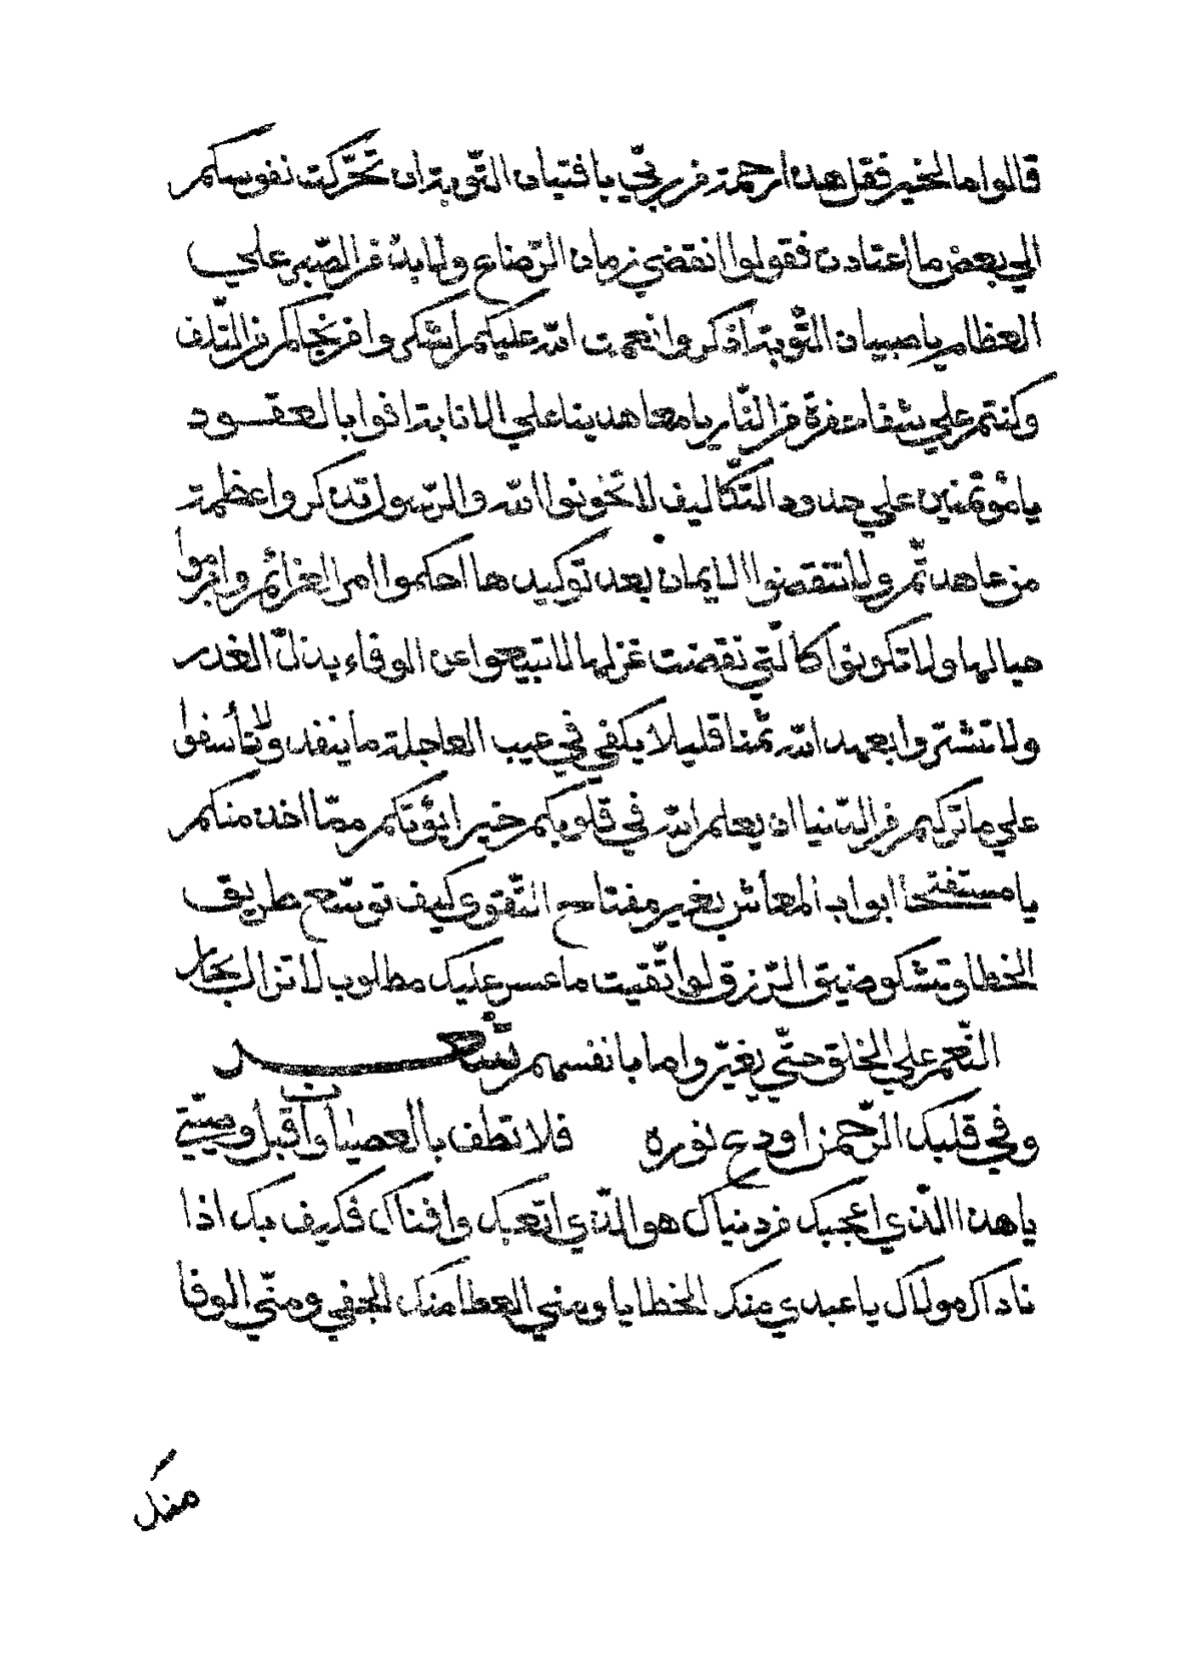 قالوا ما الخير فقل هذا رحمة من ربّي يا فتيان التّوبة ان تحرّكت نفوسكم
الي بعض ما اعتادت فقولوا انقضي زمان الرّضاع ولا بدّ من الصّبر علي
العظام يا صبيان التّوبة اذكروا نعمت الله عليكم اشكروا من نجاكم من التّلف
وكنتم علي شفا حفرة من النّار يا معاهدينا علي الانابة افوا بالعقود
يا مؤتمنين علي حدود التّكاليف لا تخونوا الله والرّسول تذكروا عظمة
من عاهدتّم ولا تنقضوا الايمان بعد توكيدها احكموا امر العزائم وابرموا
حبالها ولا تكونوا كالّتي نقضت غزلها لا تبيعوا عز الوفاء بذلّ الغدر
ولا تشتروا بعهد الله ثمنا قليلا يكفي في عيب العاجلة ما ينفد ولا تأسفوا
علي ما تركتم من الدّنيا ان يعلم الله في قلوبكم خيرا يؤتكم ممّا اخذ منكم
يا مستفتحا ابواب المعاش بغير مفتاح التّقوي كيف توسّع طريق
الخطا وتشكو ضيق الرّزق لو اتّقيت ما عسر عليك مطلوب لا تزال بحار
النّعم علي الخلق حتّي يغيّروا ما بانفسهم شعر
وفي قلبك الرّحمن اودع نوره فلا تطف بالعصيان واقبل وصيّتي
يا هذا الذّي اعجبك من دنياك هو الذّي اتعبك وافناك فكيف بك اذا
ناداك مولاك يا عبدي منك الخطايا ومني العطا منك الجفي ومنّي الوفا
منك